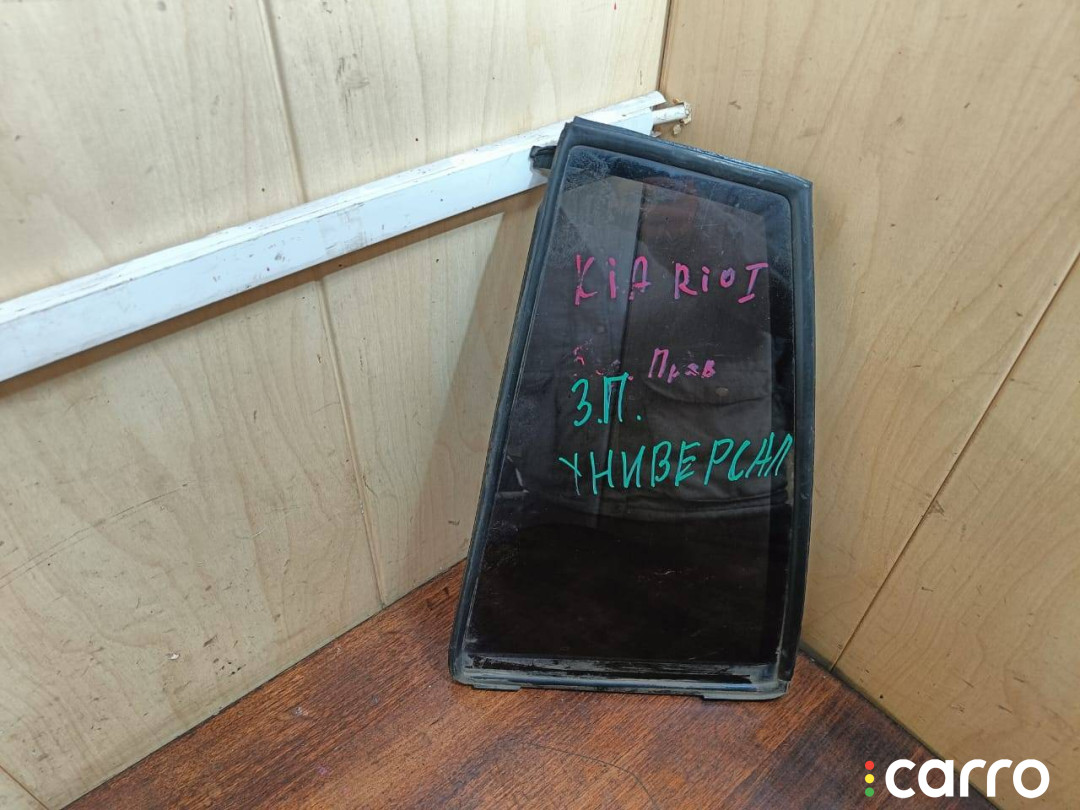 KiA RiO I
Прав
З.П.
УНИВЕРСАЛ
carro